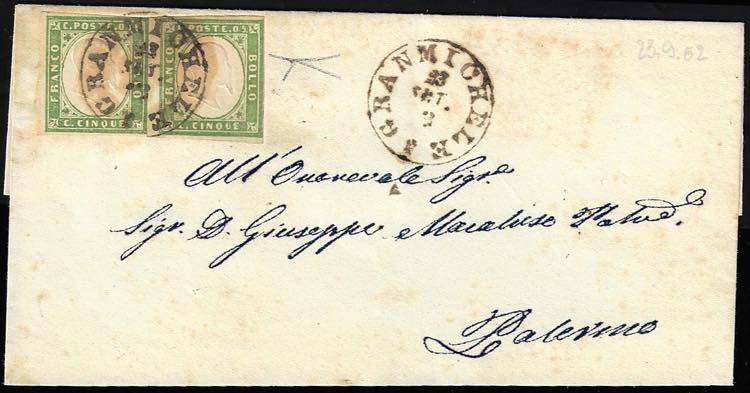 C. POSTE. 05 C. POSTE. 05
FRANCO BOLLO FRANCO BOLLO
C. CINQUE C. CINQUE
GRANMICHELE
GRANMICHELE
23
SET.
2
23.9.62
All'Onorevole Sigre
Sigr. D. Giuseppe Macaluso
Palermo